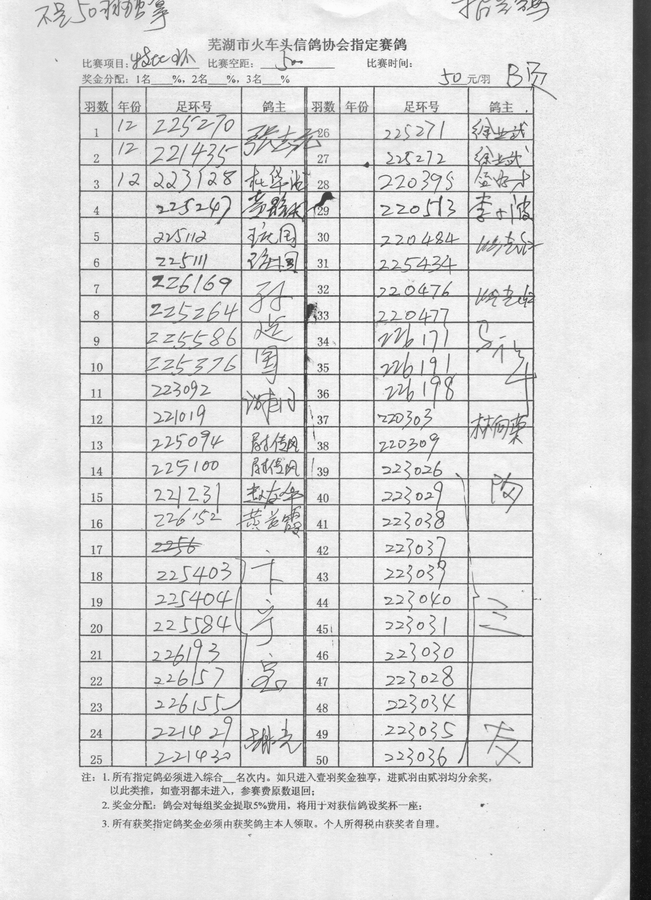 不足50羽暂拿
指定鸽
芜湖市火车头信鸽协会指定赛鸽
比赛项目: 比赛空距: 500 比赛时间:
奖金分配: 1名___%, 2名___%, 3名___% 50元/羽 B页
羽数 年份 足环号 鸽主 羽数 年份 足环号 鸽主
1 12 225270 26 225271 徐业武
2 12 221435 27 225272 徐业武
3 12 223128 28 220395
4 225247 29 220513 李小波
5 225112 30 220484
6 225111 31 225434
7 226169 孙 32 220476
8 225264 延 33 220477
9 225586 国 34 226177
10 225376 35 226191
11 223092 36 226198
12 221019 37 220303 林向荣
13 225094 尉传风 38 220309
14 225100 尉传风 39 223026
15 221231 40 223029 陶
16 226152 黄长霞 41 223038
17 2256 42 223037
18 225403 卞 43 223039
19 225404 44 223040
20 225584 45 223031 三
21 226193 46 223030
22 226157 47 223028
23 226155 48 223034
24 221429 49 223035 友
25 221430 50 223036
注: 1. 所有指定鸽必须进入综合__名次内。如只进入壹羽奖金独享, 进贰羽由贰羽均分余奖,
以此类推, 如壹羽都未进入, 参赛费原数退回;
2. 奖金分配: 鸽会对每组奖金提取5%费用, 将用于对获信鸽设奖杯一座;
3. 所有获奖指定鸽奖金必须由获奖鸽主本人领取。个人所得税由获奖者自理。